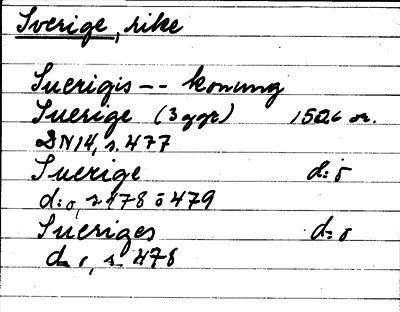 Sverige, rike
Suerigis -- konung
Suerige (3 ggr) 1526 or.
DN14, s. 477
Suerige d:o
d:o, s 478 o 479
Sueriges d:o
d:o, s. 478